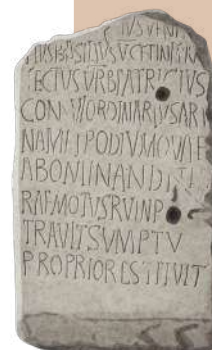 TIVSBASILIVSVCETINL
ECTVSVRBIATRICIVS
ORDINARIVSAR
NAMETPODIVMQVAE
ABOMINANDI
RAEMOTVSRVINP
TRAVITSVMPTV
PROPRIORESTITVIT